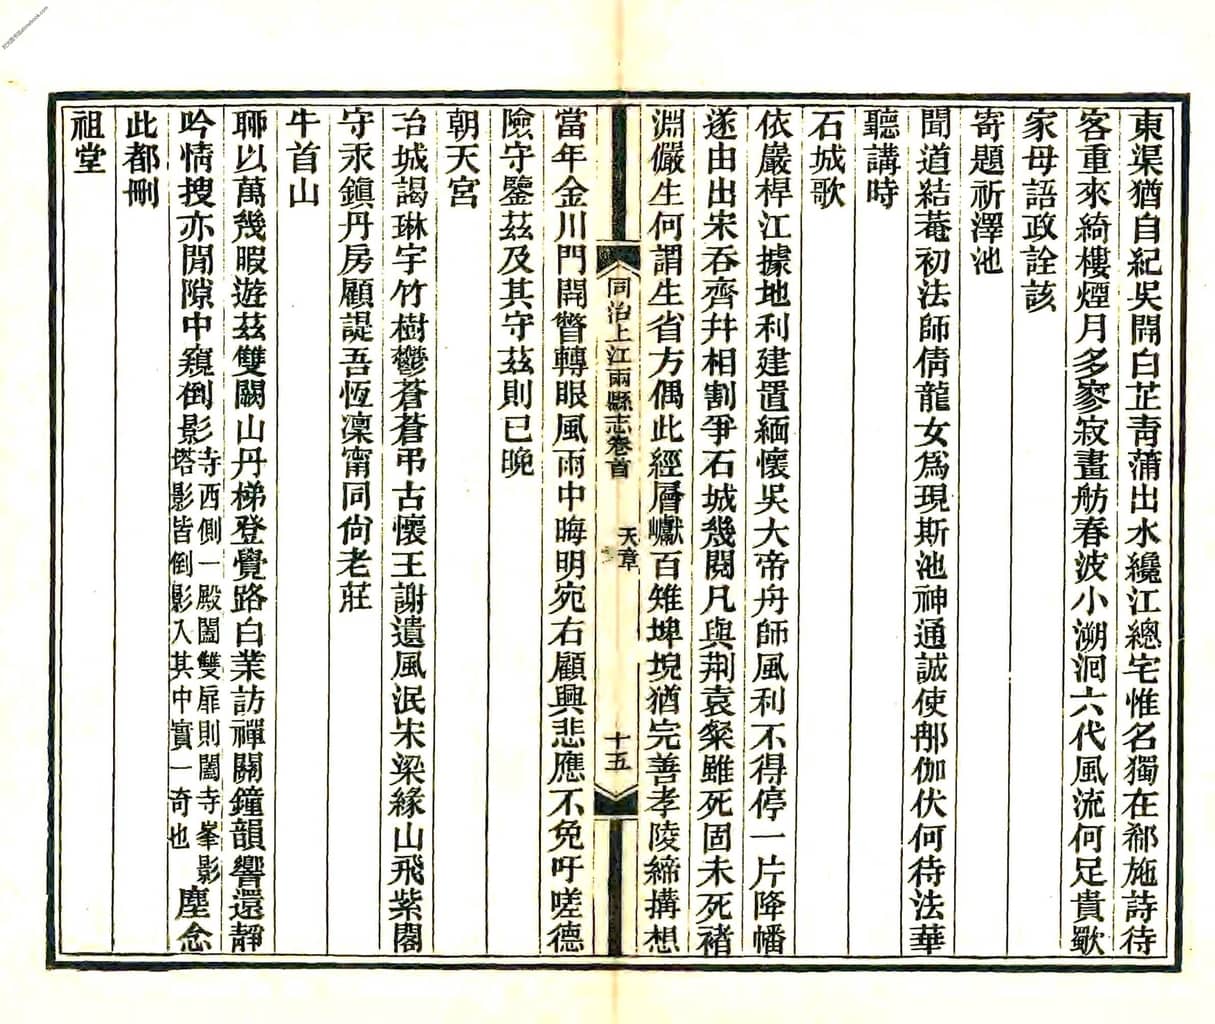 東渠猶自紀吳閞白芷青蒲出水纔江總宅惟名獨在郗施詩待
客重來綺樓煙月多寥寂畫舫春波小溯洄六代風流何足貴歌
家母語政詮該
寄題祈澤池
聞道結菴初法師倩龍女爲現斯池神通誠使那伽伏何待法華
聽講時
石城歌
依巖桿江據地利建置緬懷吳大帝舟師風利不得停一片降幡
遂由出宋吞齊幷相割爭石城幾閱凡與荆袁粲雖死固未死褚
淵儼生何謂生省方偶此經層巘百雉埤堄猶完善孝陵締搆想
同治上江兩縣志卷首 天章 十五
當年金川門開瞥轉眼風雨中晦明宛右顧興悲應不免吁嗟德
險守鑒茲及其守茲則已晚
朝天宮
冶城謁琳宇竹樹鬱蒼蒼弔古懷王謝遺風泯宋梁緣山飛紫閣
守汞鎭丹房顧諟吾恆凜甯同尙老莊
牛首山
聊以萬幾暇遊茲雙闕山丹梯登覺路白業訪禪關鐘韻響還靜
吟情搜亦閒隙中窺倒影寺西側一殿闔雙扉則闔寺峯影塔影皆倒影入其中實一奇也塵念
此都刪
祖堂